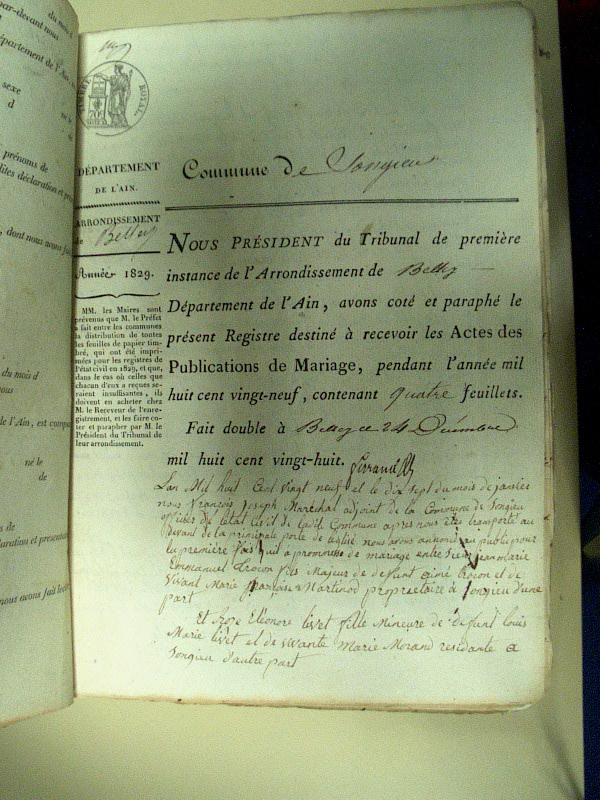 du mois d
par-devant nous
département de l'Ain,
sexe
d
né le
de
prénoms de
dites déclaration et
, dont nous avons fait
du mois d
nous
de l'Ain, est
né le
de
de
nous avons fait
TIMBRE ROYAL
70
DÉPARTEMENT
DE L'AIN.
ARRONDISSEMENT
de Belley
Année 1829.
MM. les Maires sont
prévenus que M. le Préfet
a fait entre les communes
la distribution de toutes
les feuilles de papier tim-
bré, qui ont été impri-
mées pour les registres de
l'état civil en 1829, et que,
dans le cas où celles que
chacun d'eux a reçues se-
raient insuffisantes, ils
doivent en acheter chez
M. le Receveur de l'enre-
gistrement, et les faire co-
ter et parapher par M. le
Président du Tribunal de
leur arrondissement.
Commune De Songieu
NOUS PRÉSIDENT du Tribunal de première
instance de l'Arrondissement de Belley
Département de l'Ain, avons coté et paraphé le
présent Registre destiné à recevoir les Actes des
Publications de Mariage, pendant l'année mil
huit cent vingt-neuf, contenant quatre feuillets.
Fait double à Belley ce 24 Décembre
mil huit cent vingt-huit.
L'an Mil huit Cent vingt neuf et le dix sept du mois de janvier
nous François Joseph Marechal adjoint de la Commune de Songieu
officier de l'état civil de ladite Commune apres nous être transporté au
devant de la principale porte de l'église nous avons annoncé au public pour
la première fois qu'il a promesse de mariage entre Sieur Jean Marie
Emmanuel fils Majeur de defunt aimé et de
vivant Marie françoise Martinod propriétaire à Songieu d'une
part
Et Rose Eléonore livet fille Mineure de defunt louis
Marie livet et de vivante Marie Morand residante a
Songieu d'autre part